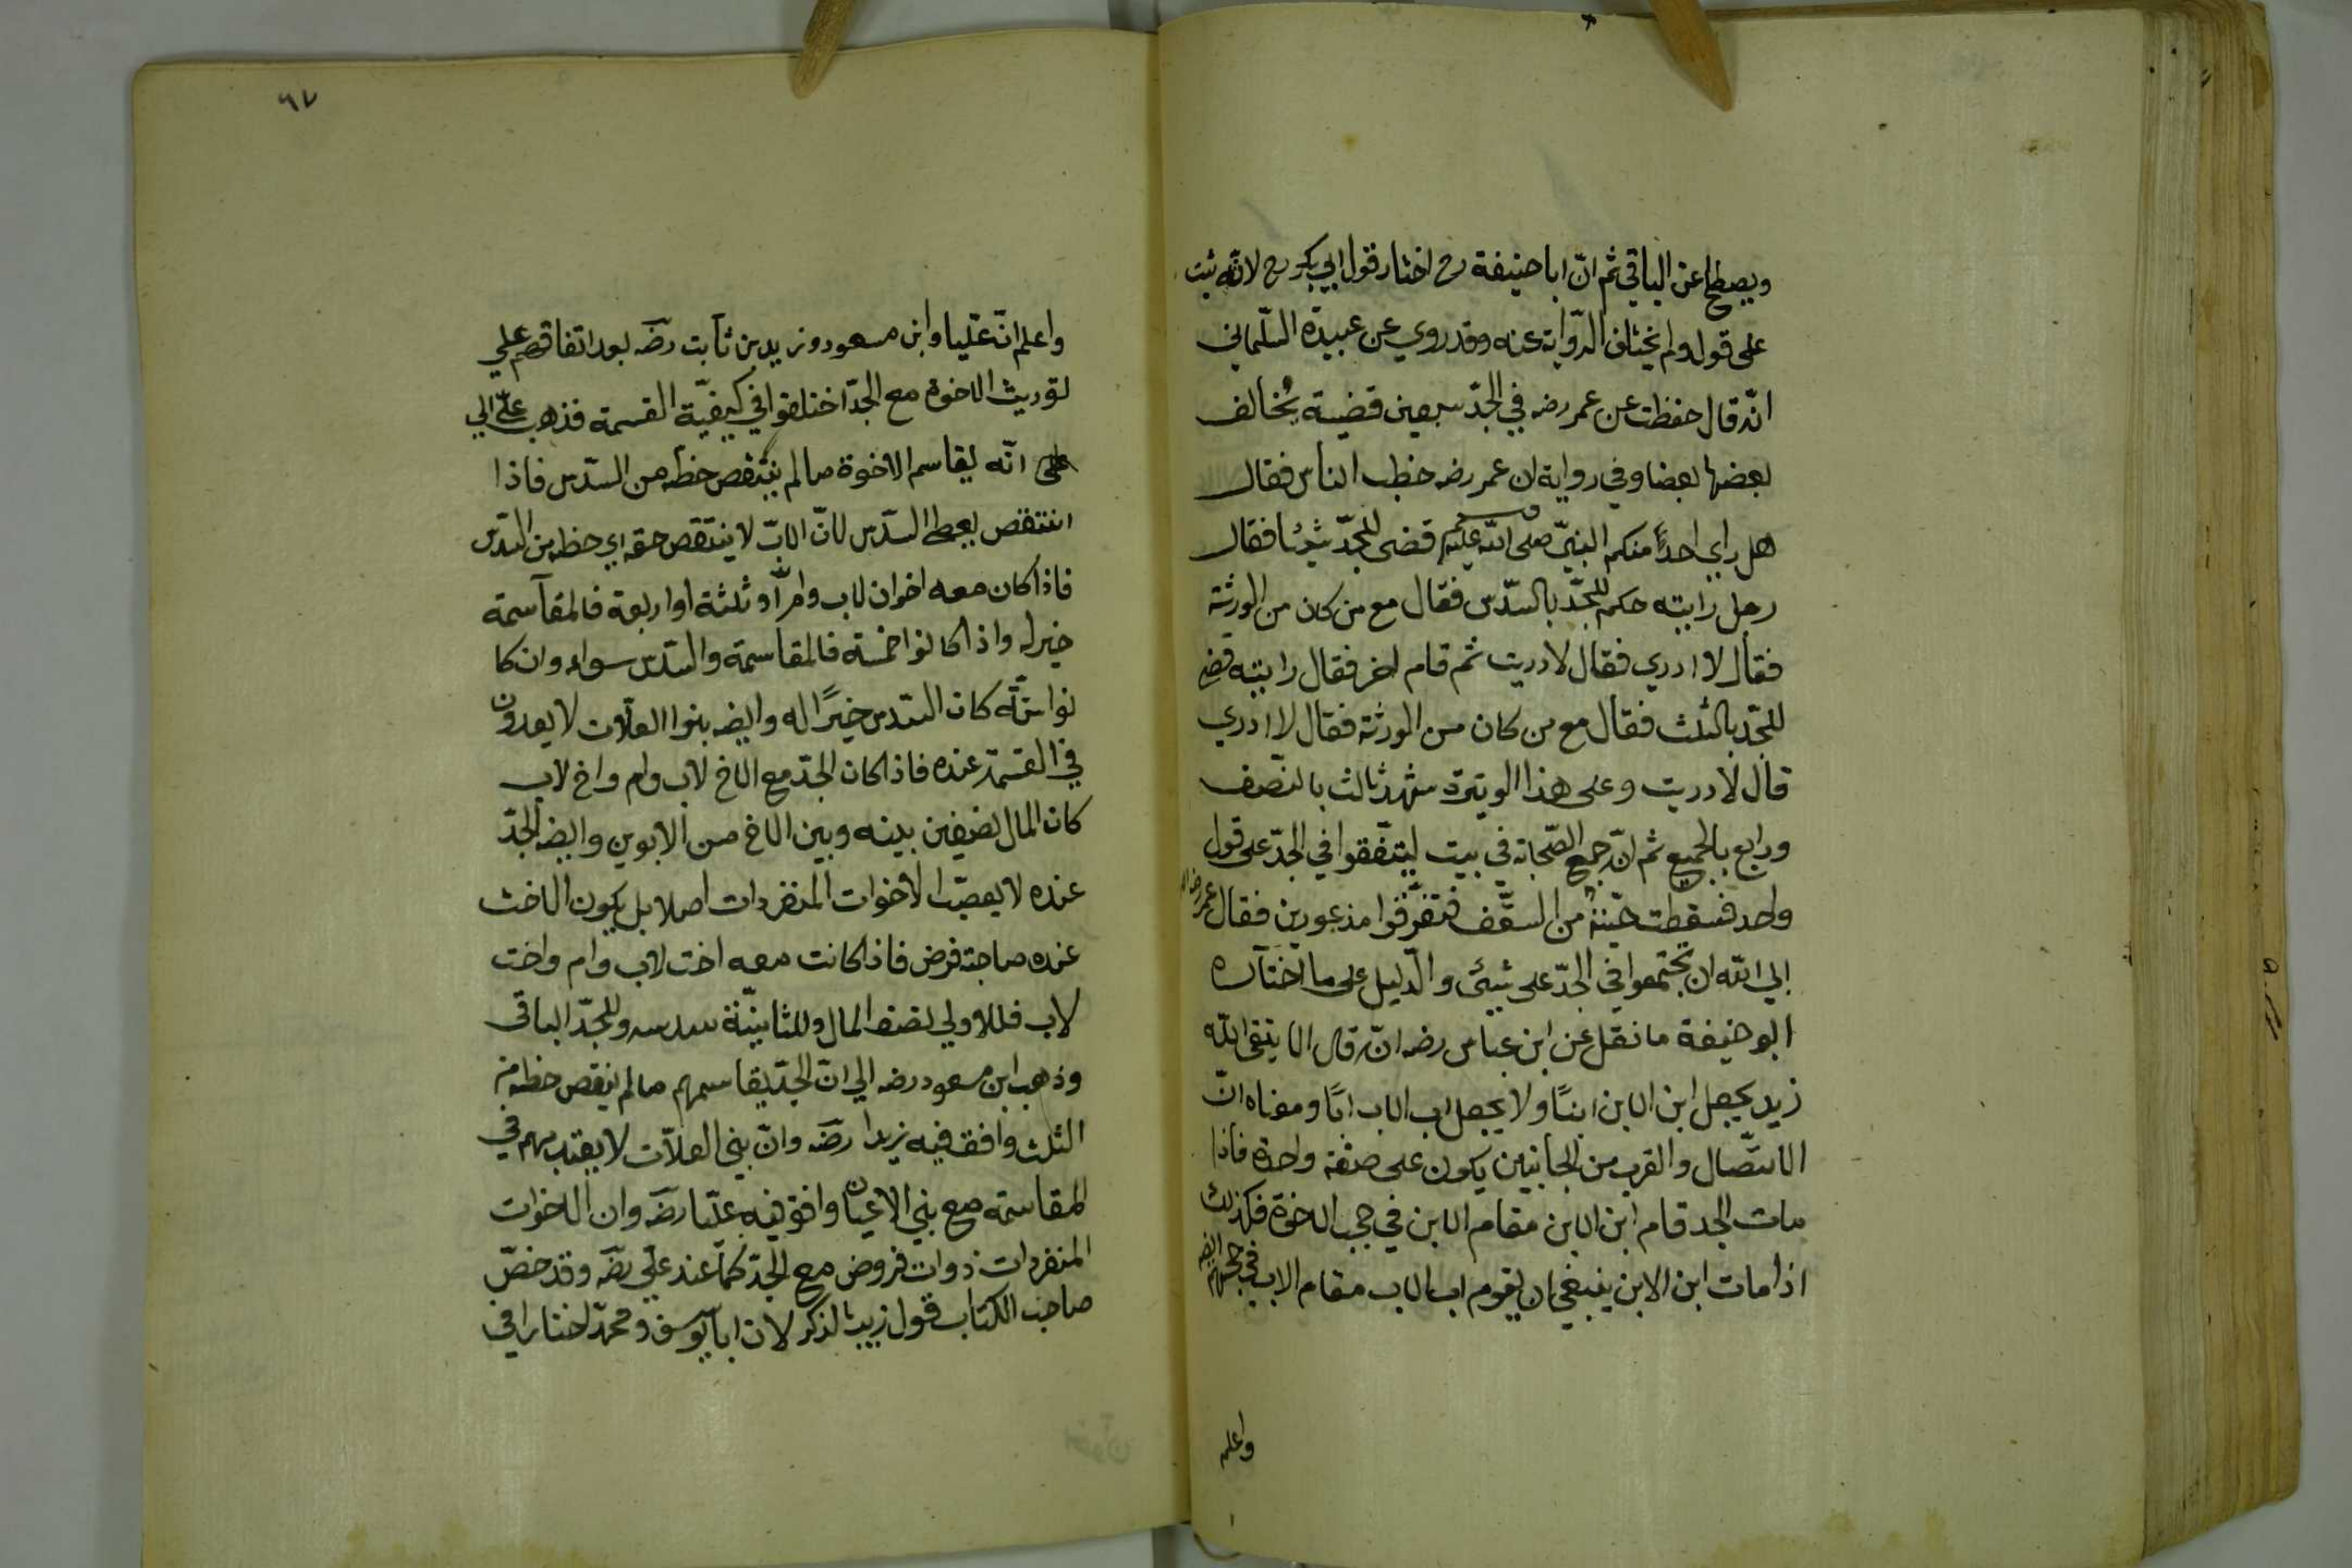 ويصطلح عن الباقي ثم انّ ابا حنيفة رح اختار قول ابي بكر رح لانّه ثبت
على قول ولم يختلف الرّواية عنه وقد روي عن عبيدة السّلماني
انّه قال حفظت عن عمر رضه في الجدّ سبعين قضية يُخالف
بعضها بعضا وفي رواية ان عمر رضه خطب الناس فقال
هل راى احداً منكم النبيّ صلى الله عليه وسلم قضى للجدّ شيئا فقال
رجل رايته حكم للجدّ بالسّدس فقال مع من كان من الورثة
فقال لا ادري فقال لا دريت ثم قام اخر فقال رايته قضى
للجدّ بالثلث فقال مع من كان من الورثة فقال لا ادري
قال لا دريت وعلى هذا الوتيرة شهد ثالث بالنّصف
ورابع بالجميع ثم انّه جمع الصّحابة في بيت ليتّفقوا في الجدّ على قول
واحد فسقطت حيّة من السقّف فتفرّقوا مذعورين فقال عمر رضه
ابي الله ان يجتمعوا في الجدّ على شيئ والدّليل على ما اختاره
ابو حنيفة ما نقل عن ابن عباس رضه انّه قال الا يتقى الله
زيد يجعل ابن الابن ابنًا ولا يجعل اب الاب ابًا ومعناه انّ
الاتّصال والقرب من الجانبين يكون على صفة واحدة فاذا
مات الجد قام ابن الابن مقام الابن في حجب الاخوة فكذلك
اذا مات ابن الابن ينبغي ان يقوم اب الاب مقام الاب في حجبهم ايضا
واعلم
٦٧
واعلم انّ عليّا وابن مسعود وزيد بن ثابت رضه بعد اتفاقهم على
توريث الاخوة مع الجدّ اختلفوا في كيفيّة القسمة فذهب عليّ الي
على انّه يقاسم الاخوة ما لم ينتقص حظّه من السّدس فاذا
انتقص يعطى السّدس لانّ الاب لا ينتقص حقه اي حظه من السّدس
فاذا كان معه اخوان لاب وامّ او ثلثة او اربعة فالمقاسمة
خير له واذا كانوا خمسة فالمقاسمة والسّدس سواء وان كا
نوا ستّة كان السّدس خيرًا له وايضه بنوا العلّات لا يعدون
في القسمة عنده فاذا كان الجدّ مع الاخ لاب وام واخ لاب
كان المال نصفين بينه وبين الاخ من الابوين وايضه الجدّ
عنده لا يعصّب الاخوات المنفردات اصلا بل يكون الاخت
عنده صاحبة فرض فاذا كانت معه اخت لاب وام واخت
لاب فللاولي نصف المال وللثانيّة سدسه وللجدّ الباقي
وذهب ابن مسعود رضه الي انّ الجدّ يقاسمهم ما لم ينقص حظه من
الثلث وافق فيه زيدا رضه وانّ بني العلاّت لا يعتد بهم في
المقاسمة مع بني الاعيان وافق فيه عليّا رضه وان الاخوات
المنفردات ذوات فروض مع الجدّ كما عند عليّ رضه وقد خصّ
صاحب الكتاب قول زيد بالذكر لان ابا يوسف ومحمدّ اختارا في